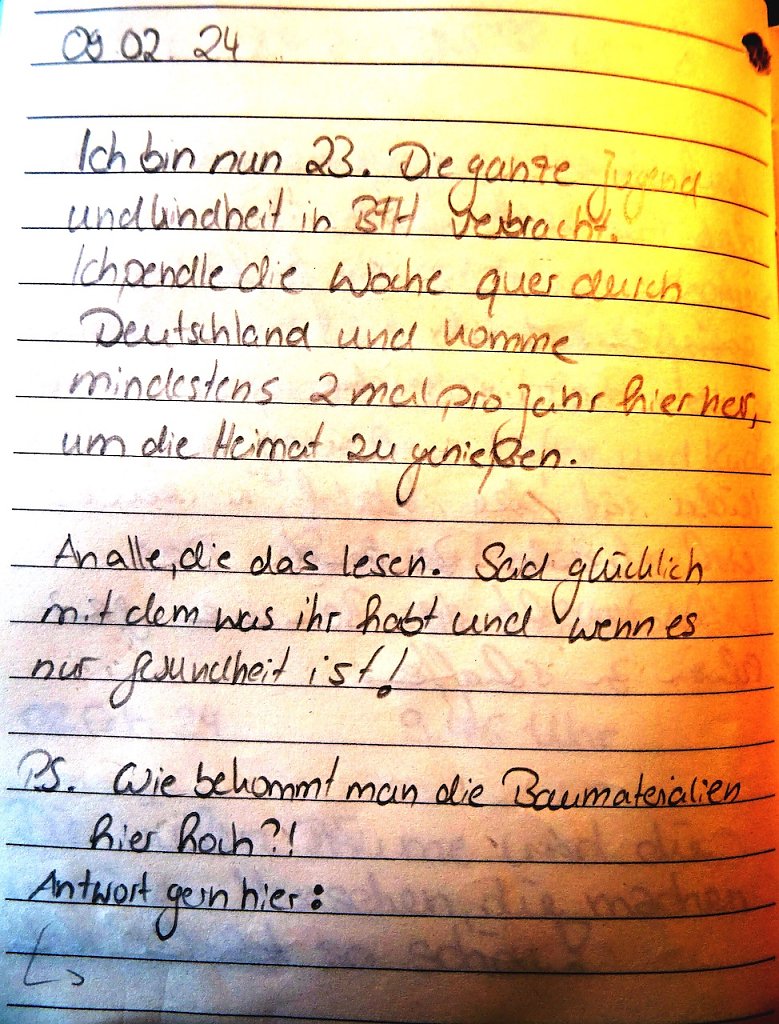 09.02.24
Ich bin nun 23. Die ganze Jugend
und Kindheit in BTH verbracht.
Ich pendle die Woche quer durch
Deutschland und komme
mindestens 2 mal pro Jahr hierher,
um die Heimat zu genießen.
An alle, die das lesen. Seid glücklich
mit dem was ihr habt und wenn es
nur Gesundheit ist!
PS. Wie bekommt man die Baumaterialien
hier hoch?!
Antwort gern hier: